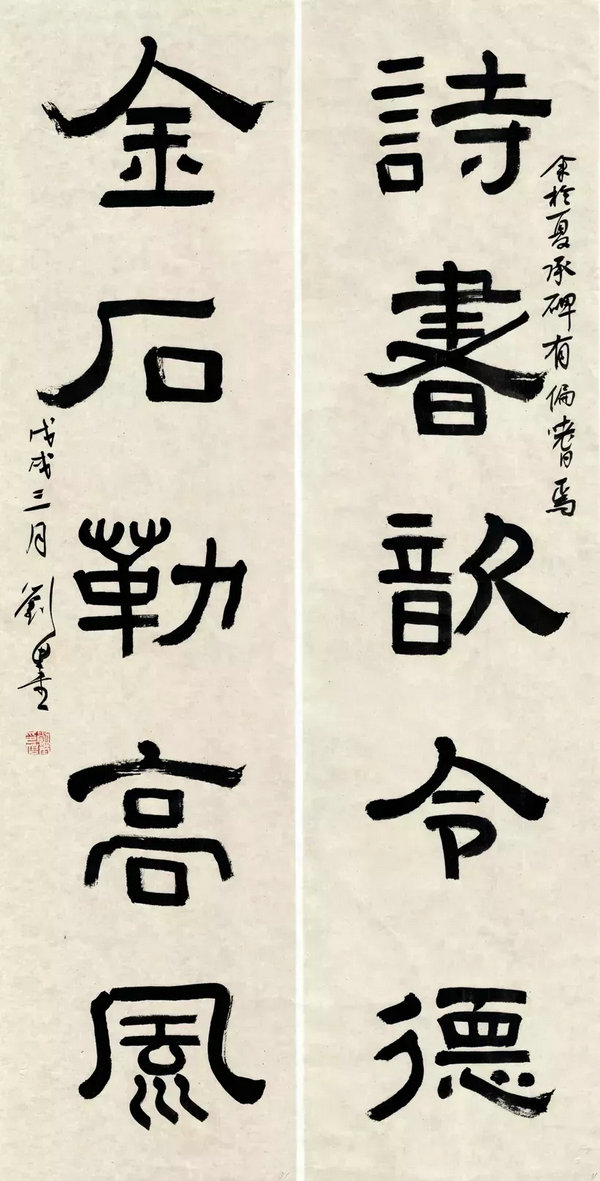 詩書歆令德
余於夏承碑有偏嗜焉
金石勒高風
戊戌三月 劉墨